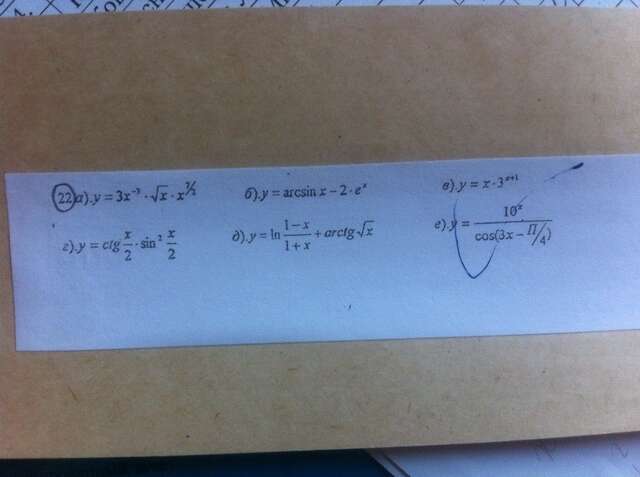 22 а).y = 3x⁻³ · √x · x^3/2 б).y = arcsin x − 2 · eˣ в).y = x · 3ˣ⁺¹
г).y = ctg x/2 · sin² x/2 д).y = ln (1−x)/(1+x) + arctg √x е).y = 10ˣ/cos(3x − П/4)